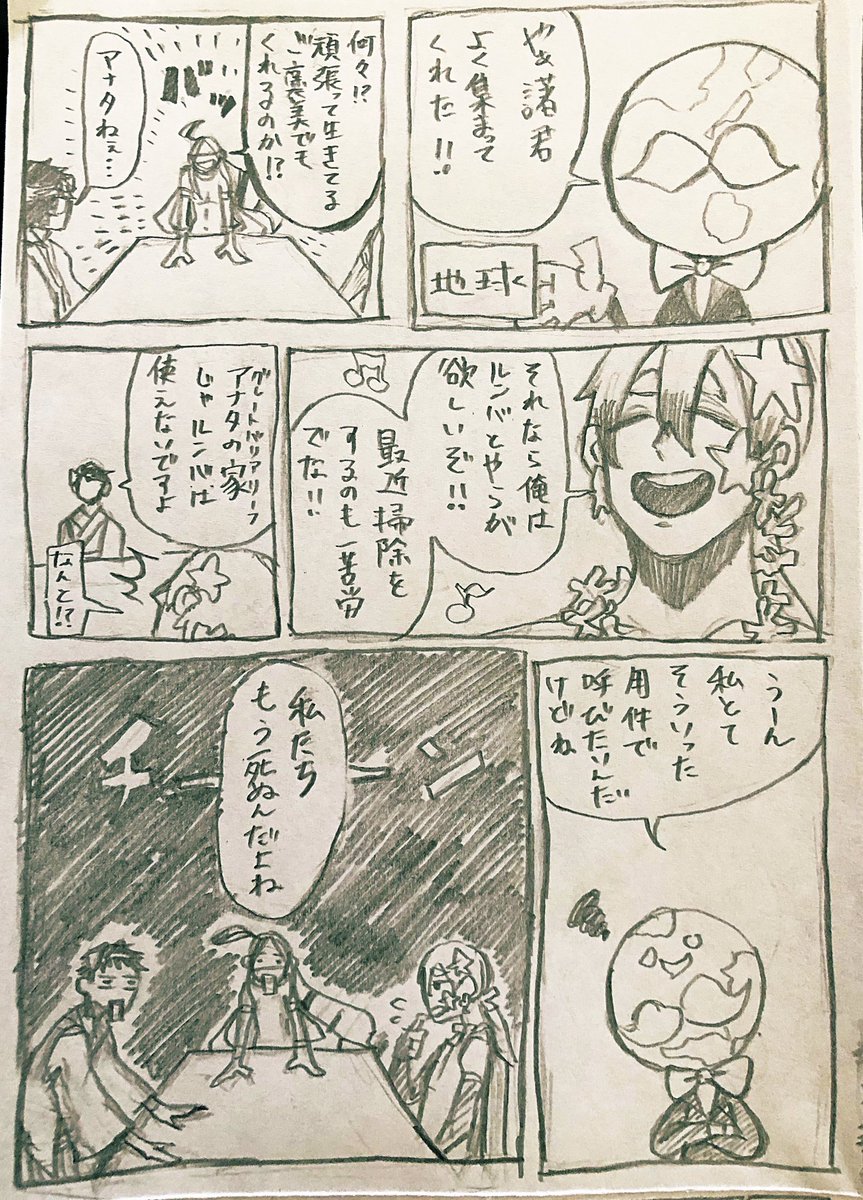 やぁ諸君
よく集まって
くれた!!
地球
何々!?
頑張って生きてる
ご褒美でも
くれるのか!?
バッ
アナタねぇ…
それなら俺は
ルンバとやらが
欲しいぞ!!
最近掃除を
するのも一苦労
でな!!
グレートバリアリーフ
アナタの家
じゃルンバは
使えないですよ
なんと!?
うーん
私とて
そういった
用件で
呼びたいんだ
けどね
私たち
もう死ぬんだよね